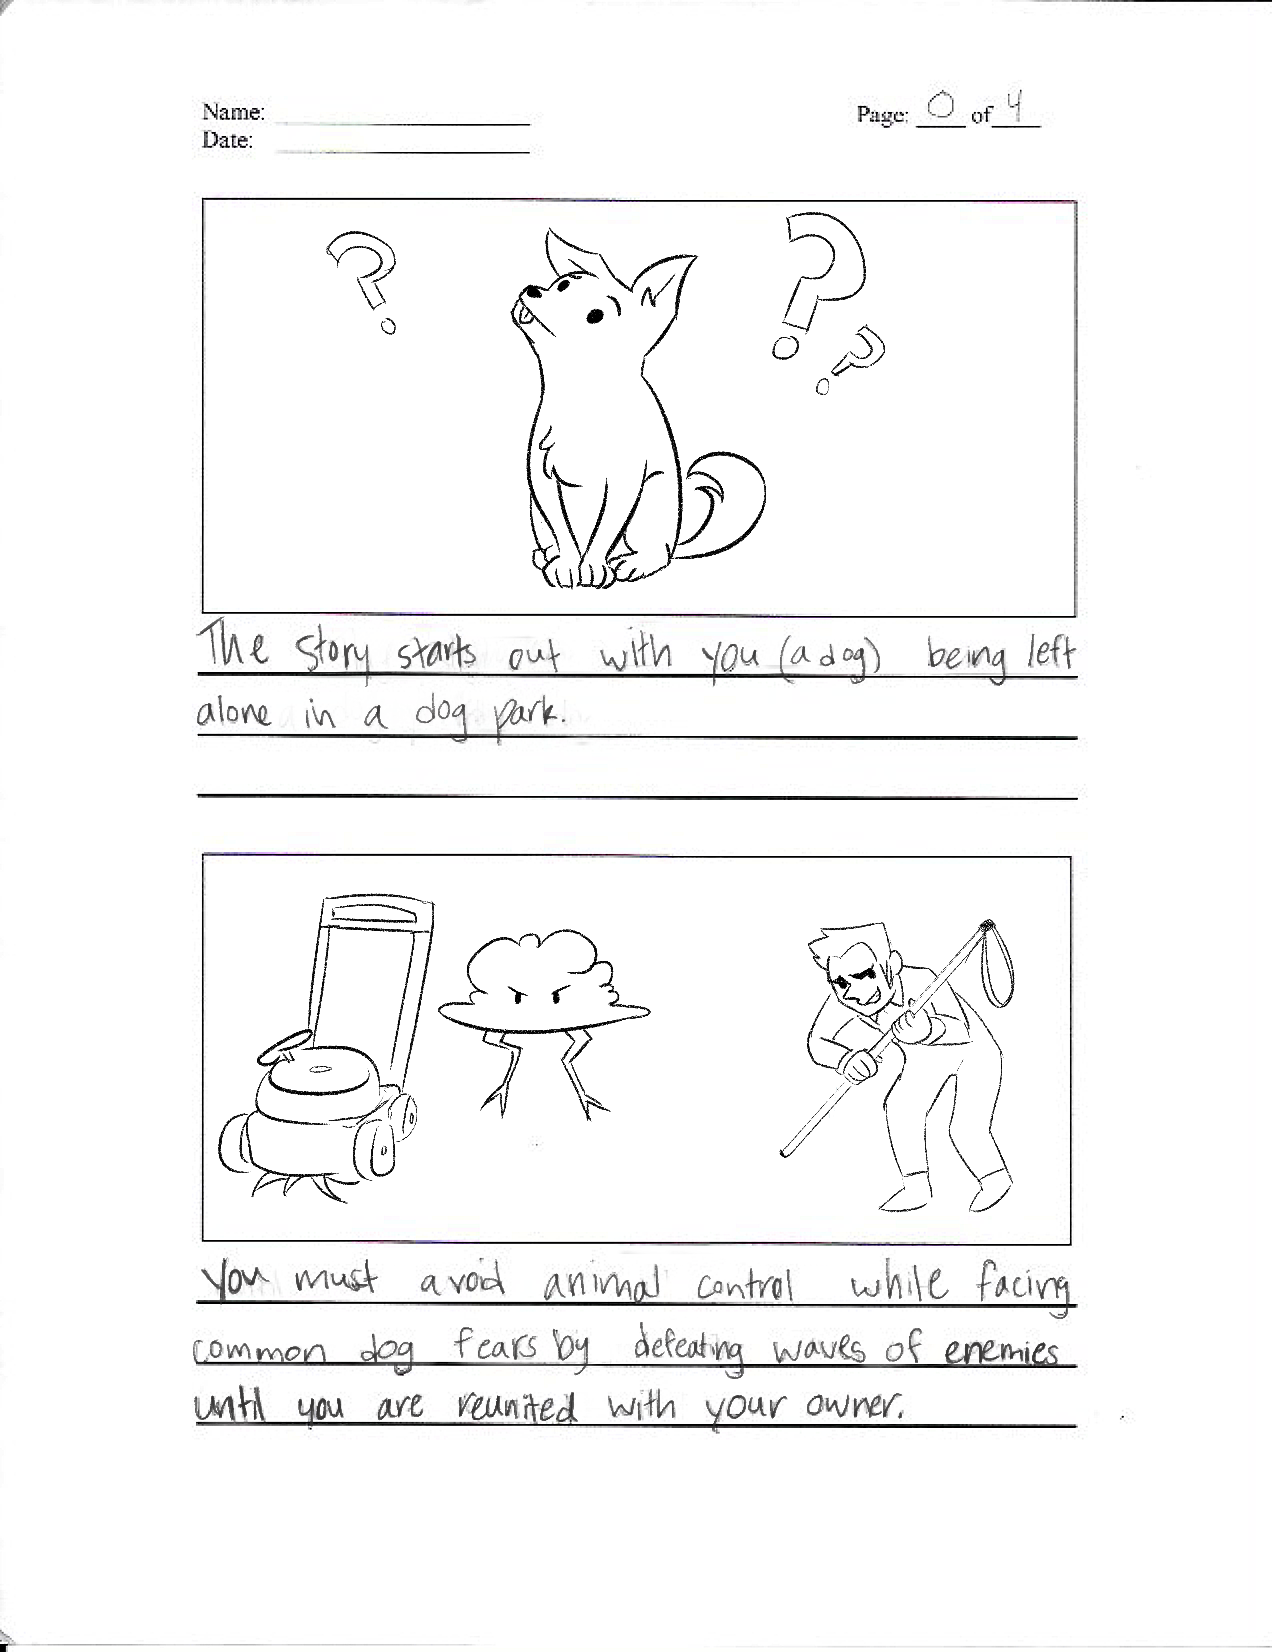 Name:
Page: 0 of 4
Date:
? ? ?
The story starts out with you (a dog) being left
alone in a dog park.
You must avoid animal control while facing
common dog fears by defeating waves of enemies
until you are reunited with your owner.